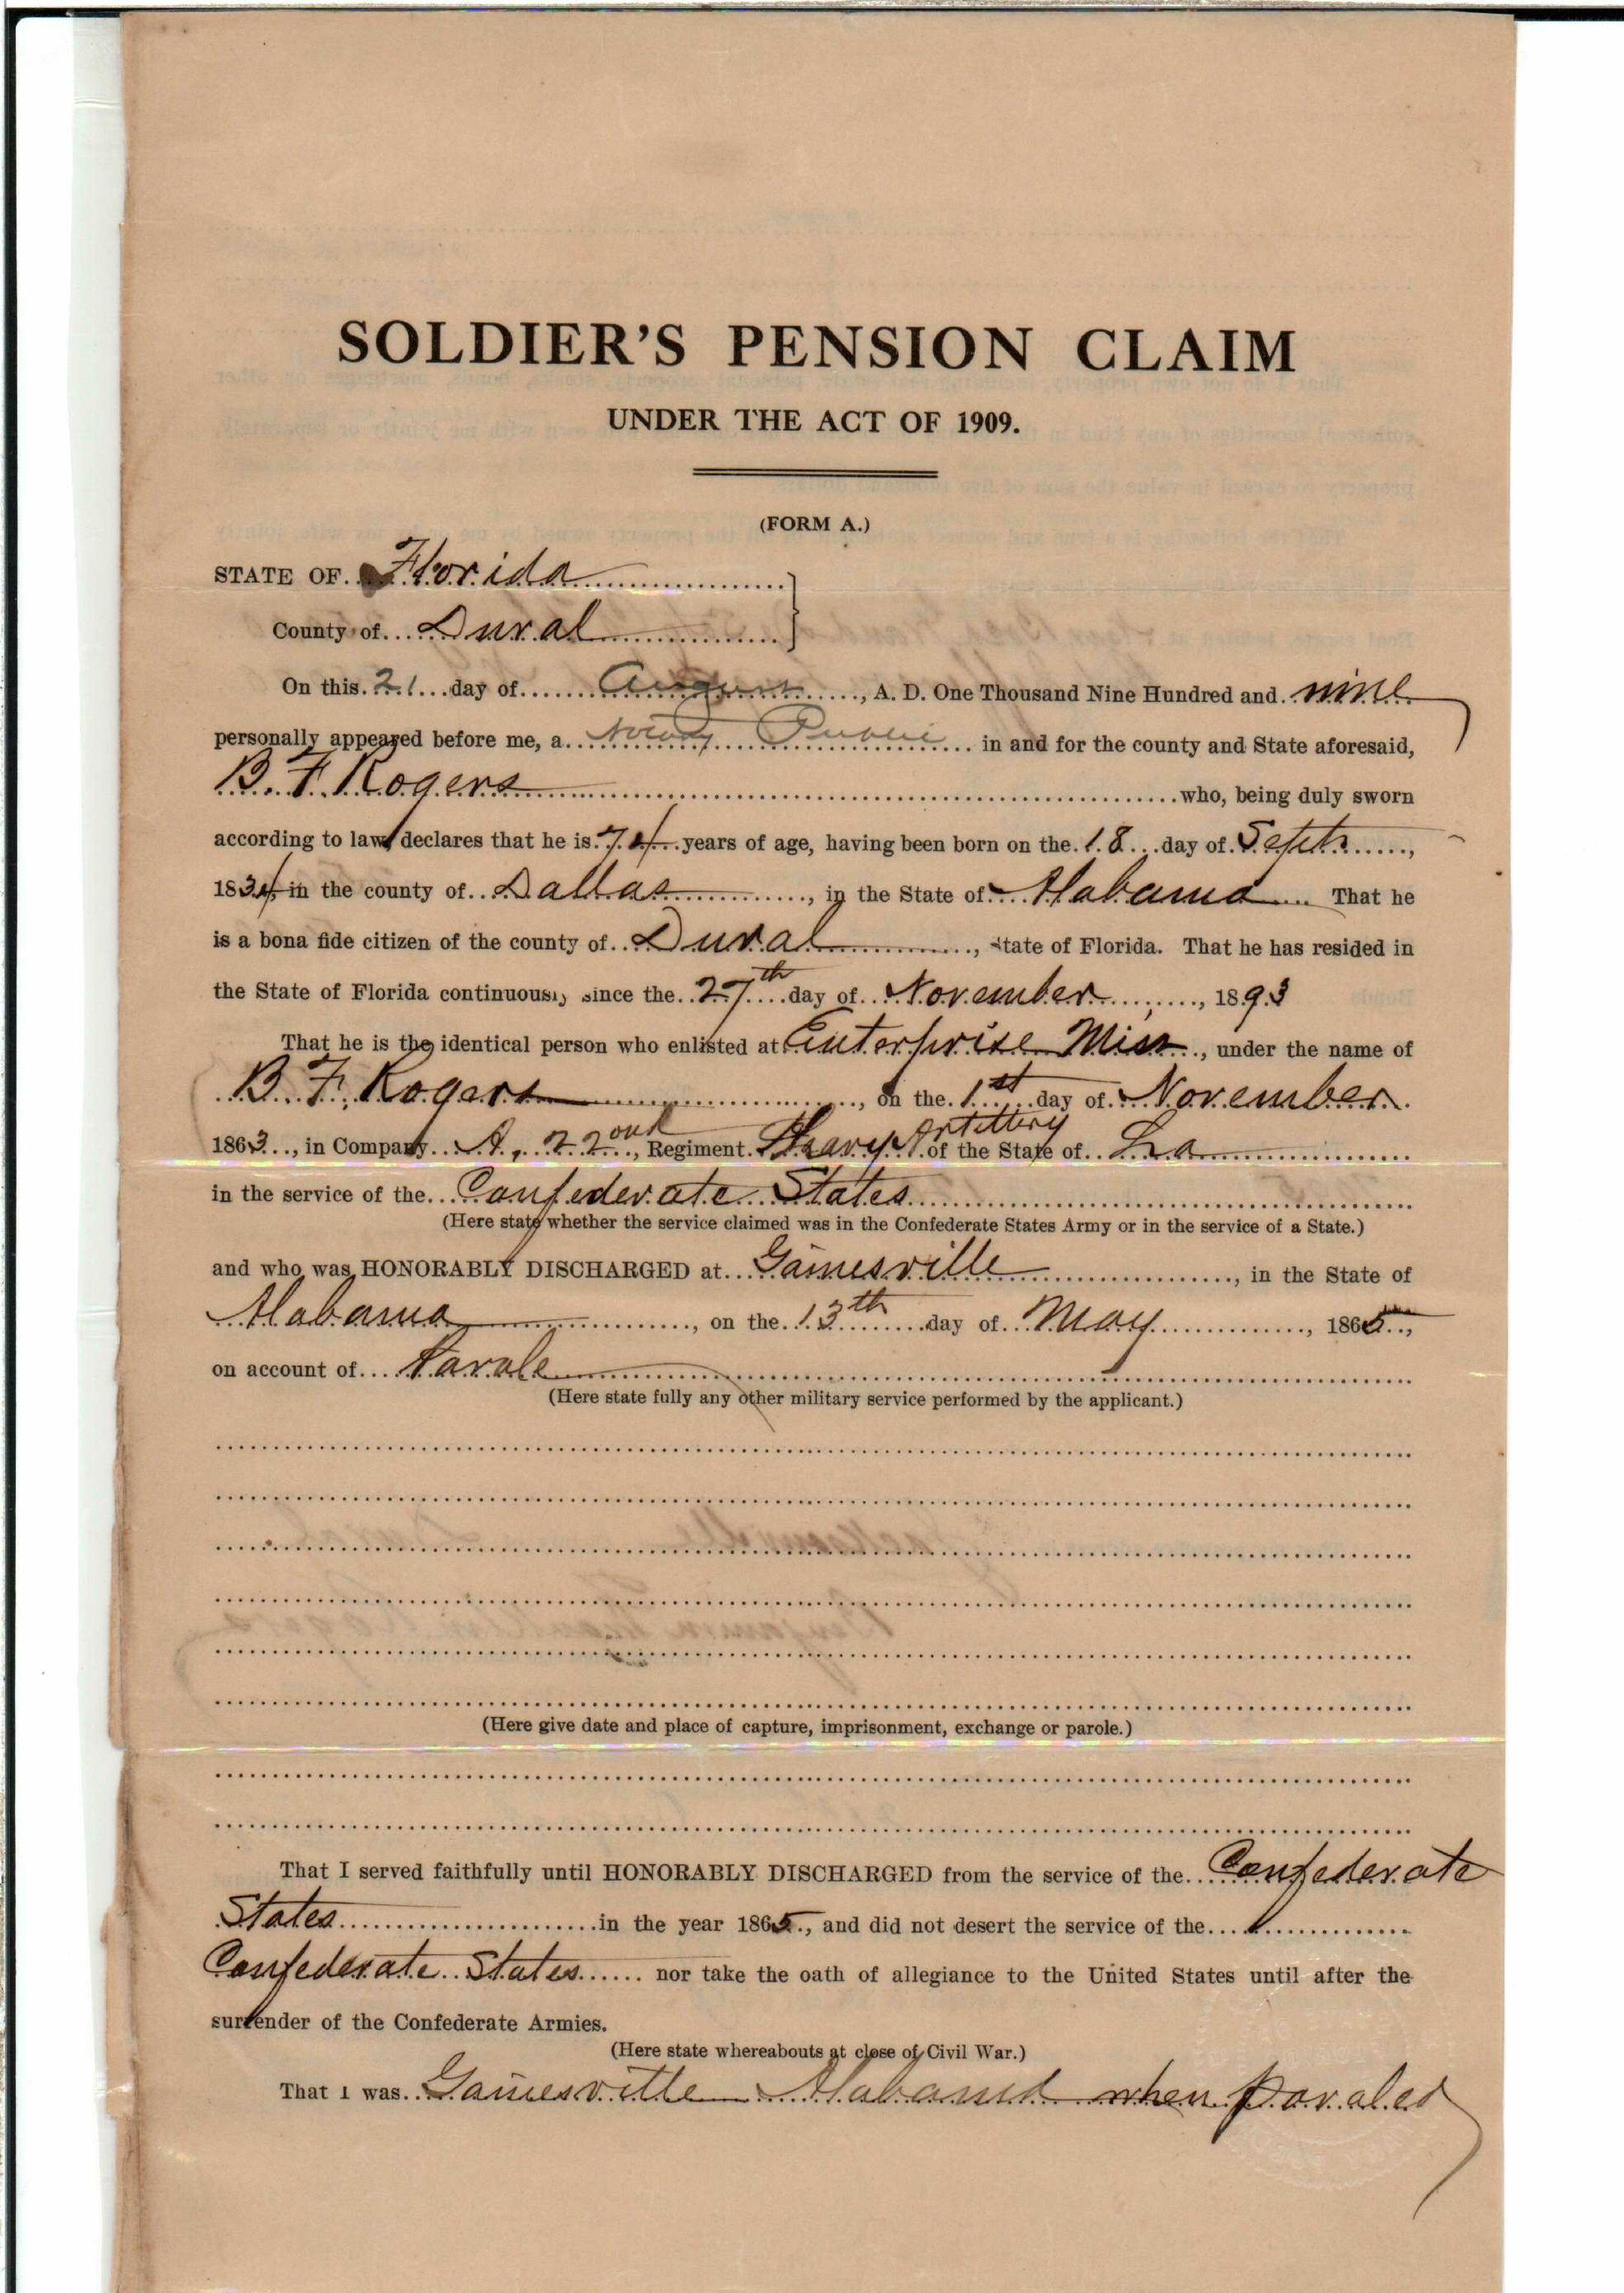 SOLDIER'S PENSION CLAIM
UNDER THE ACT OF 1909.
(FORM A.)
STATE OF Florida
County of Duval
On this 21 day of August, A. D. One Thousand Nine Hundred and nine
personally appeared before me, a Notary Public in and for the county and State aforesaid,
B. F. Rogers who, being duly sworn
according to law declares that he is 74 years of age, having been born on the 18 day of Septr,
1834, in the county of Dallas, in the State of Alabama That he
is a bona fide citizen of the county of Duval, State of Florida. That he has resided in
the State of Florida continuously since the 27th day of November, 1893
That he is the identical person who enlisted at Enterprise Miss, under the name of
B. F. Rogers, on the 1st day of November
1863, in Company A, 22ond, Regiment Heavy Artillery of the State of La
in the service of the Confederate States
(Here state whether the service claimed was in the Confederate States Army or in the service of a State.)
and who was HONORABLY DISCHARGED at Gainesville, in the State of
Alabama, on the 13th day of May, 1865,
on account of Parole
(Here state fully any other military service performed by the applicant.)
(Here give date and place of capture, imprisonment, exchange or parole.)
That I served faithfully until HONORABLY DISCHARGED from the service of the Confederate
States in the year 1865, and did not desert the service of the
Confederate States nor take the oath of allegiance to the United States until after the
surrender of the Confederate Armies.
(Here state whereabouts at close of Civil War.)
That I was Gainesville Alabama when paroled